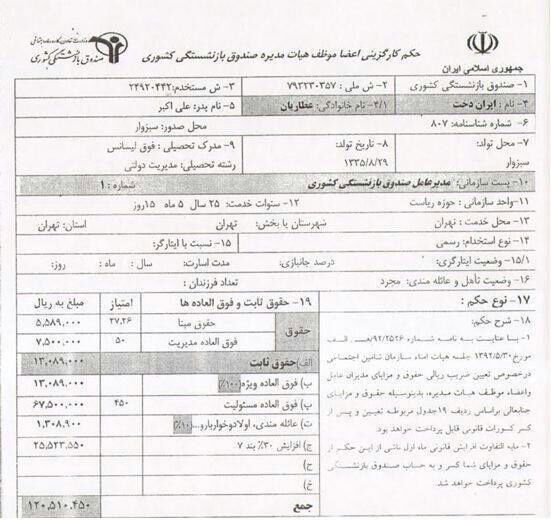 جمهوری اسلامی ایران
حکم کارگزینی اعضا موظف هیات مدیره صندوق بازنشستگی کشوری
صندوق بازنشستگی کشوری
۱- صندوق بازنشستگی کشوری
۲- ش ملی : ۷۹۳۲۳۰۳۵۷
۳- ش مستخدم: ۲۴۹۲۰۴۴۲
۴- نام : ایران دخت
۴/۱- نام خانوادگی: عطاریان
۵- نام پدر: علی اکبر
۶- شماره شناسنامه: ۸۰۷
محل صدور: سبزوار
۷- محل تولد: سبزوار
۸- تاریخ تولد: ۱۳۳۵/۸/۲۹
۹- مدرک تحصیلی : فوق لیسانس
رشته تحصیلی: مدیریت دولتی
۱۰- پست سازمانی: مدیرعامل صندوق بازنشستگی کشوری
شماره : ۱
۱۱- واحد سازمانی : حوزه ریاست
۱۲- سنوات خدمت: ۲۵ سال ۵ ماه ۱۵روز
۱۳- محل خدمت : تهران
شهرستان یا بخش: تهران
استان: تهران
۱۴- نوع استخدام: رسمی
۱۵- نسبت با ایثارگر:
۱۵/۱- وضعیت ایثارگری:
درصد جانبازی:
مدت اسارت: سال : ماه : روز:
۱۶- وضعیت تأهل و عائله مندی: مجرد
تعداد فرزندان :
۱۷- نوع حکم :
۱۸- شرح حکم:
۱- با عنایت به نامه شماره ۹۲/۲۵۲۶/هـ الف
مورخ ۱۳۹۲/۵/۳۰ جلسه هیات امناء سازمان تامین اجتماعی
درخصوص تعیین ضریب ریالی حقوق و مزایای مدیران عامل
واعضاء موظف هیات مدیره، بدینوسیله حقوق و مزایای
جنابعالی براساس ردیف ۱۹جدول مربوطه تعیین و پس از
کسر کسورات قانونی قابل پرداخت خواهد بود.
۲- مابه التفاوت افزایش قانونی ماه اول ناشی از این حکم از
حقوق و مزایای شما کسر و به حساب صندوق بازنشستگی
کشوری پرداخت خواهد شد
۱۹- حقوق ثابت و فوق العاده ها
امتیاز
مبلغ به ریال
حقوق
حقوق مبنا ۳۷.۲۶ ۵,۵۸۹,۰۰۰
فوق العاده مدیریت ۵۰ ۷,۵۰۰,۰۰۰
الف) حقوق ثابت ۱۳,۰۸۹,۰۰۰
ب) فوق العاده ویژه (۱۰۰٪) ۱۳,۰۸۹,۰۰۰
پ) فوق العاده مسئولیت ۴۵۰ ۶۷,۵۰۰,۰۰۰
ت) عائله مندی، اولادوخواربارو...(۱۰٪) ۱,۳۰۸,۹۰۰
ج) افزایش ۳۰٪ بند ۷ ۲۵,۵۲۳,۵۵۰
ح)
خ)
جمع ۱۲۰,۵۱۰,۴۵۰